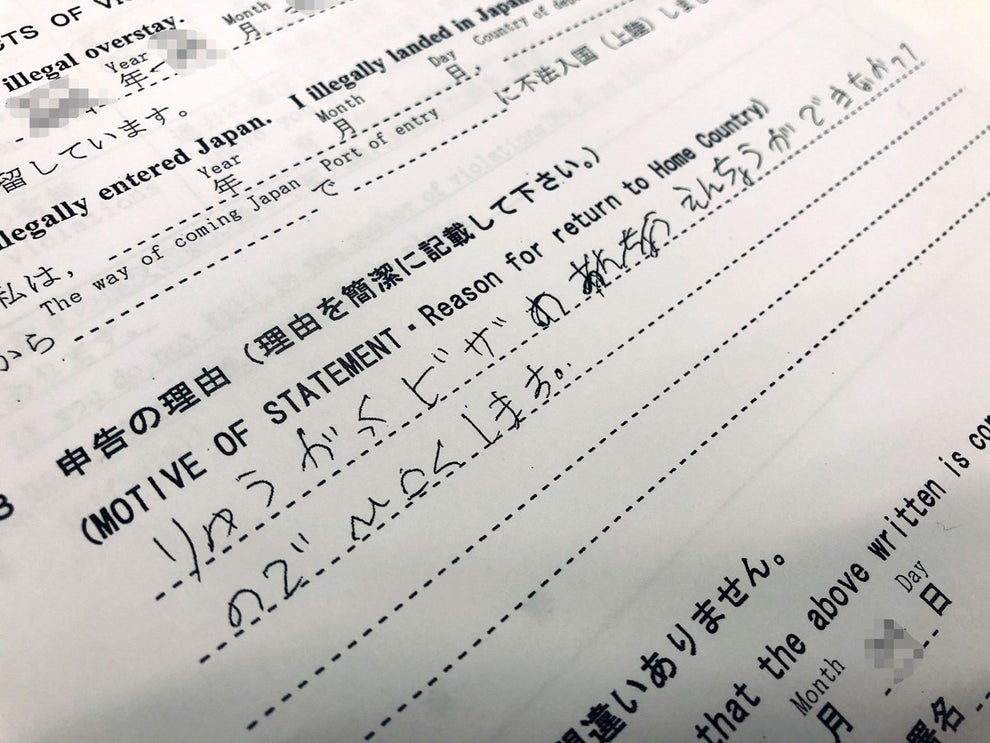 CTS OF VI
illegal overstay.
Month
月
Year
年
留しています。
I illegally landed in Japan
illegally entered Japan.
Year Month Day Country of dep
年 月 日、
に不法入国(上陸)しまし
私は、
The way of coming Japan Port of entry
から で
申告の理由(理由を簡潔に記載して下さい。)
(MOTIVE OF STATEMENT・Reason for return to Home Country)
りゅうがくビザの えんちょうができなかった
ので きこくします。
間違いありません。
that the above written is con
Month Day
月 日
署名